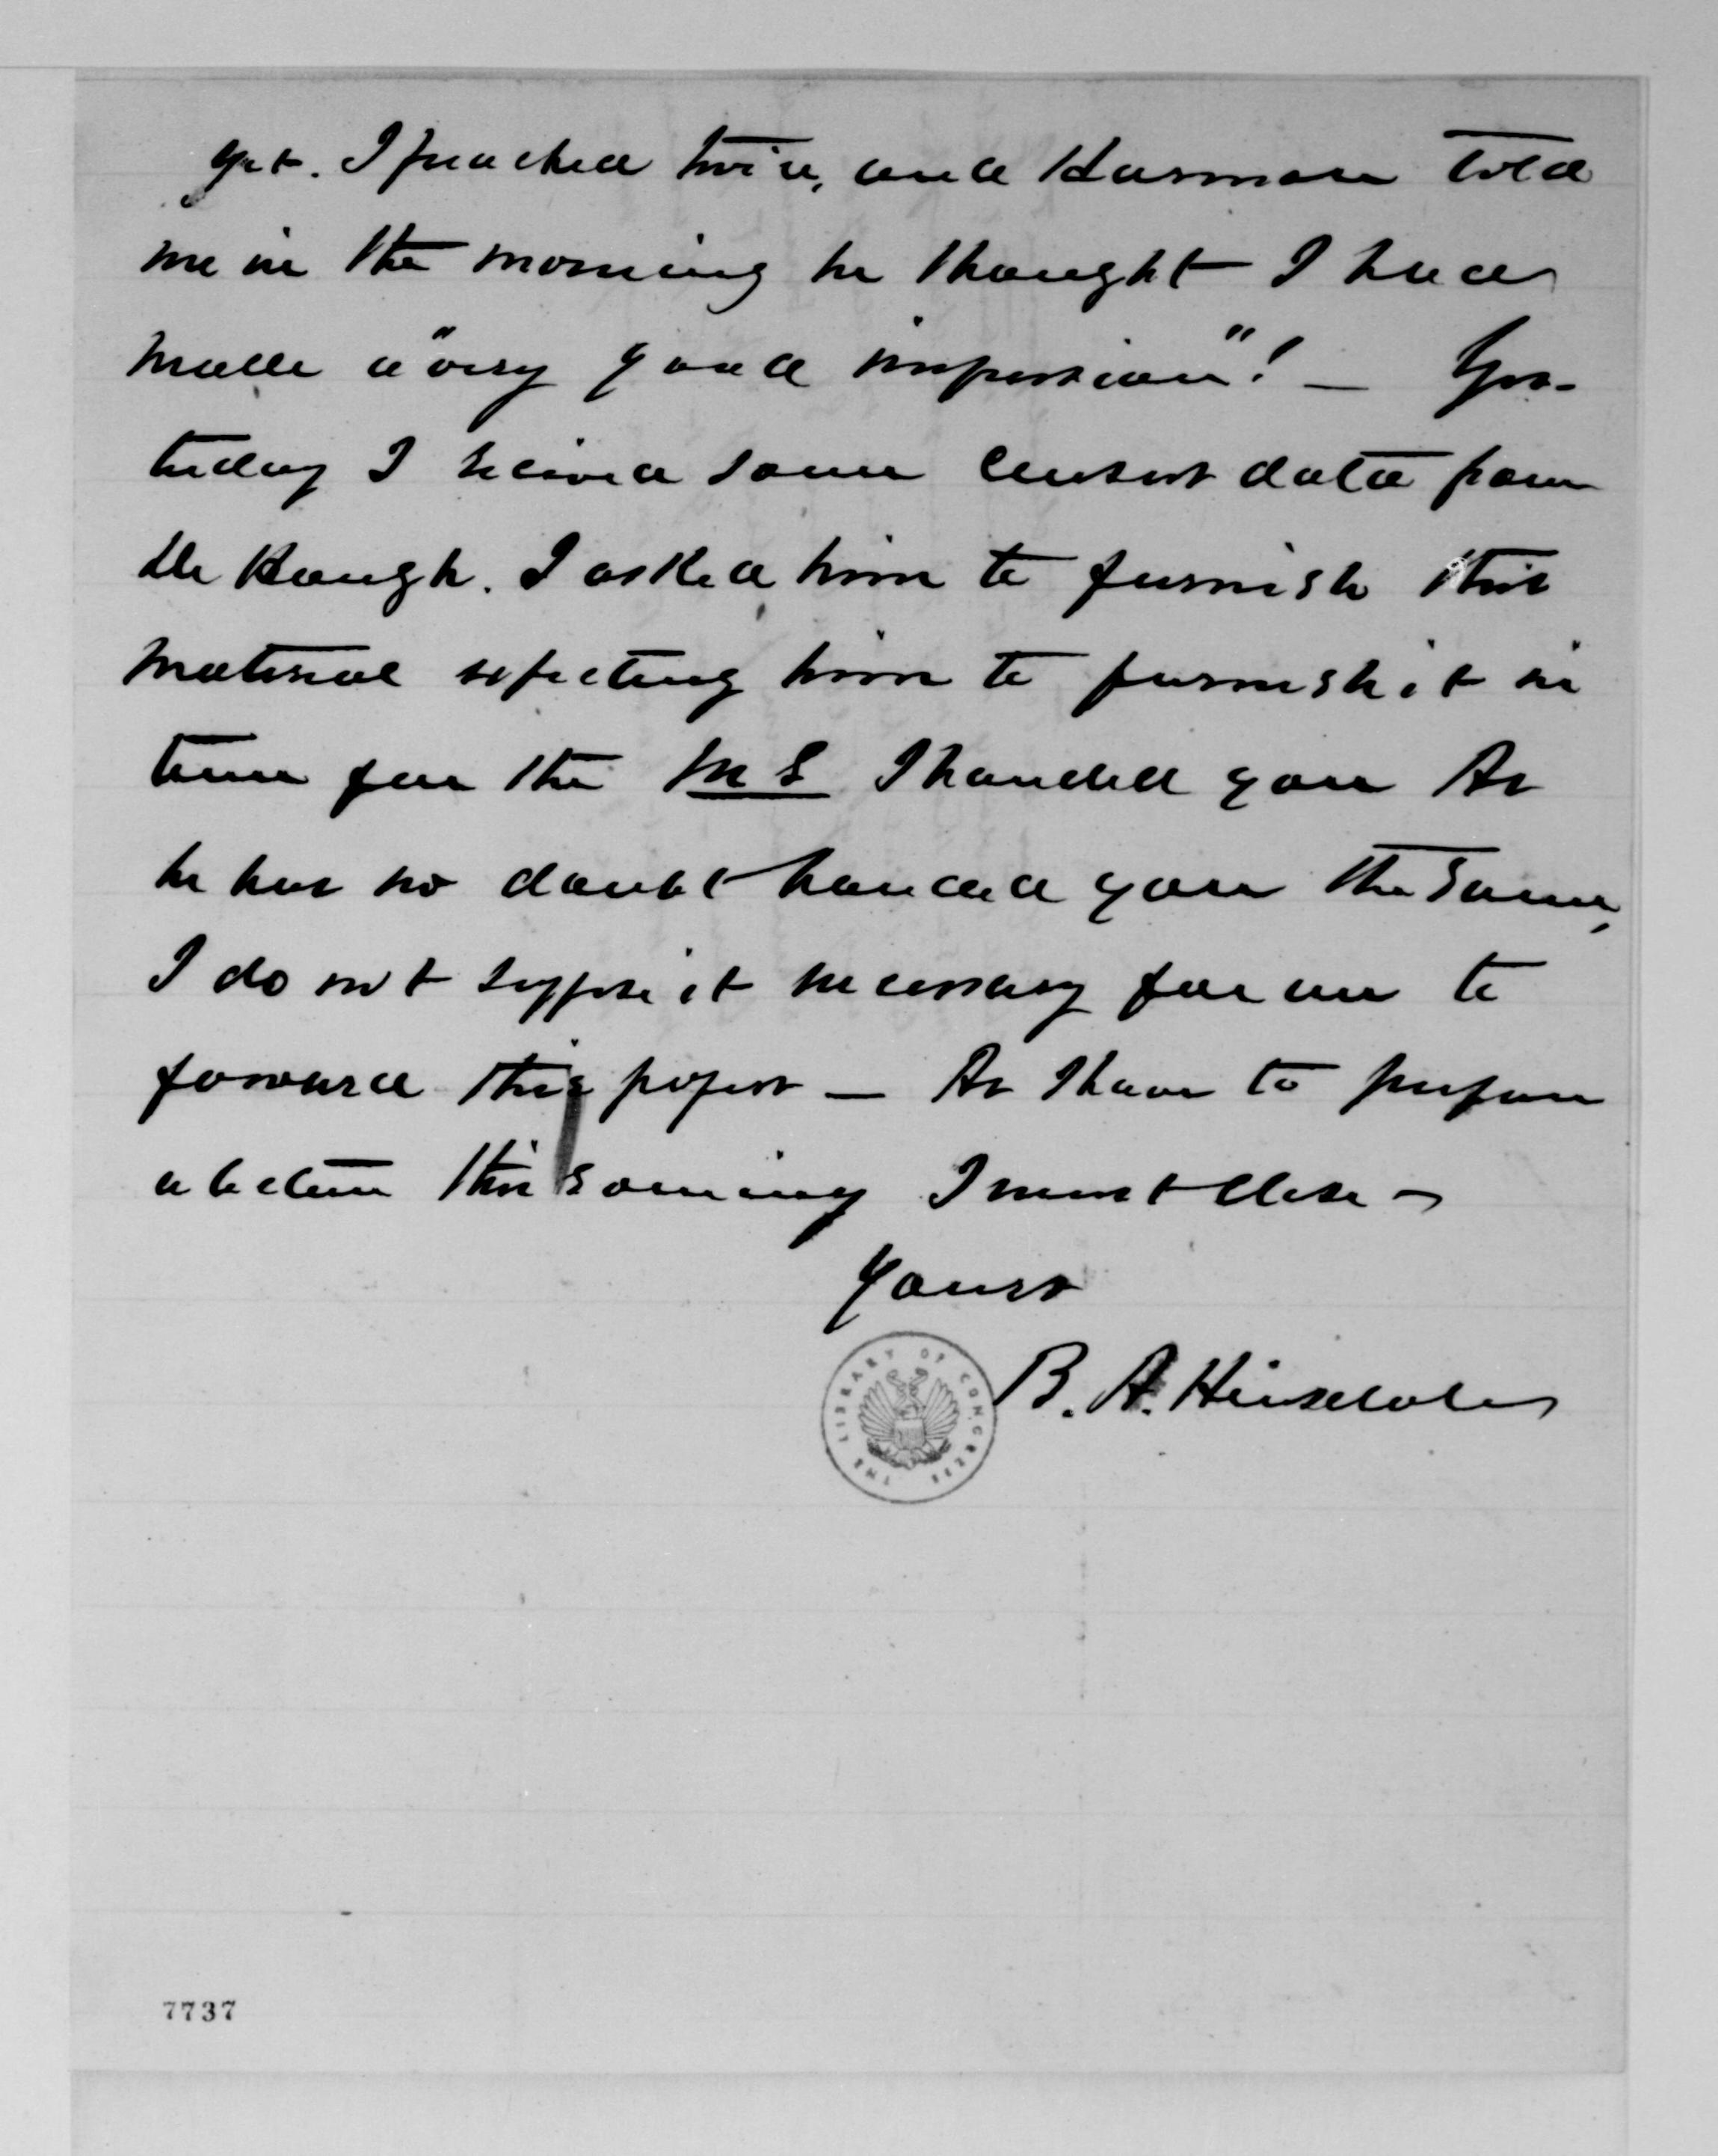 yet. I preached twice, and Harmon told
me in the morning he thought I had
made a "very good impression"! — Yes-
terday I received some census data from
Dr Hough. I asked him to furnish this
material expecting him to furnish it in
time for the MS I handed you As
he has no doubt handed you the same,
I do not suppose it necessary for me to
forward this papers — As I have to prepare
a lecture this evening I must close —
Yours
B. A. Hinsdale
THE LIBRARY OF CONGRESS
7737